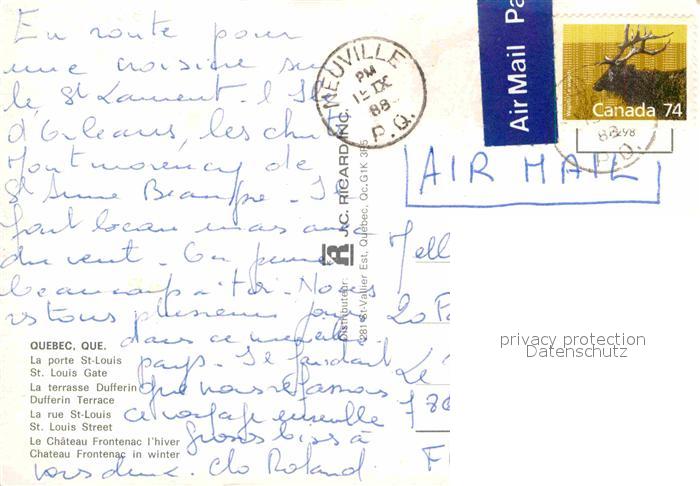 En route pour
une croisière sur
le St Laurent. l'Ile
d'Orléans, les chutes
Montmorency de
St Anne Beaupré. Il
fait beau mais avec
du vent. On pense
beaucoup à toi. Nous
restons plusieurs jours
dans ce
pays. Il faudrait
que nous refassions
ce voyage ensemble
Gros bises à
vous deux. Clo Roland.
QUEBEC, QUE.
La porte St-Louis
St. Louis Gate
La terrasse Dufferin
Dufferin Terrace
La rue St-Louis
St. Louis Street
Le Château Frontenac l'hiver
Chateau Frontenac in winter
Distributeur:
R J.C. RICARD INC.
St-Vallier Est, Québec, Qc, G1K
NEUVILLE
PM
DE
88
P.Q.
Air Mail Pa
Canada 74
88
P.Q.
AIR MAIL
20
F
privacy protection
Datenschutz